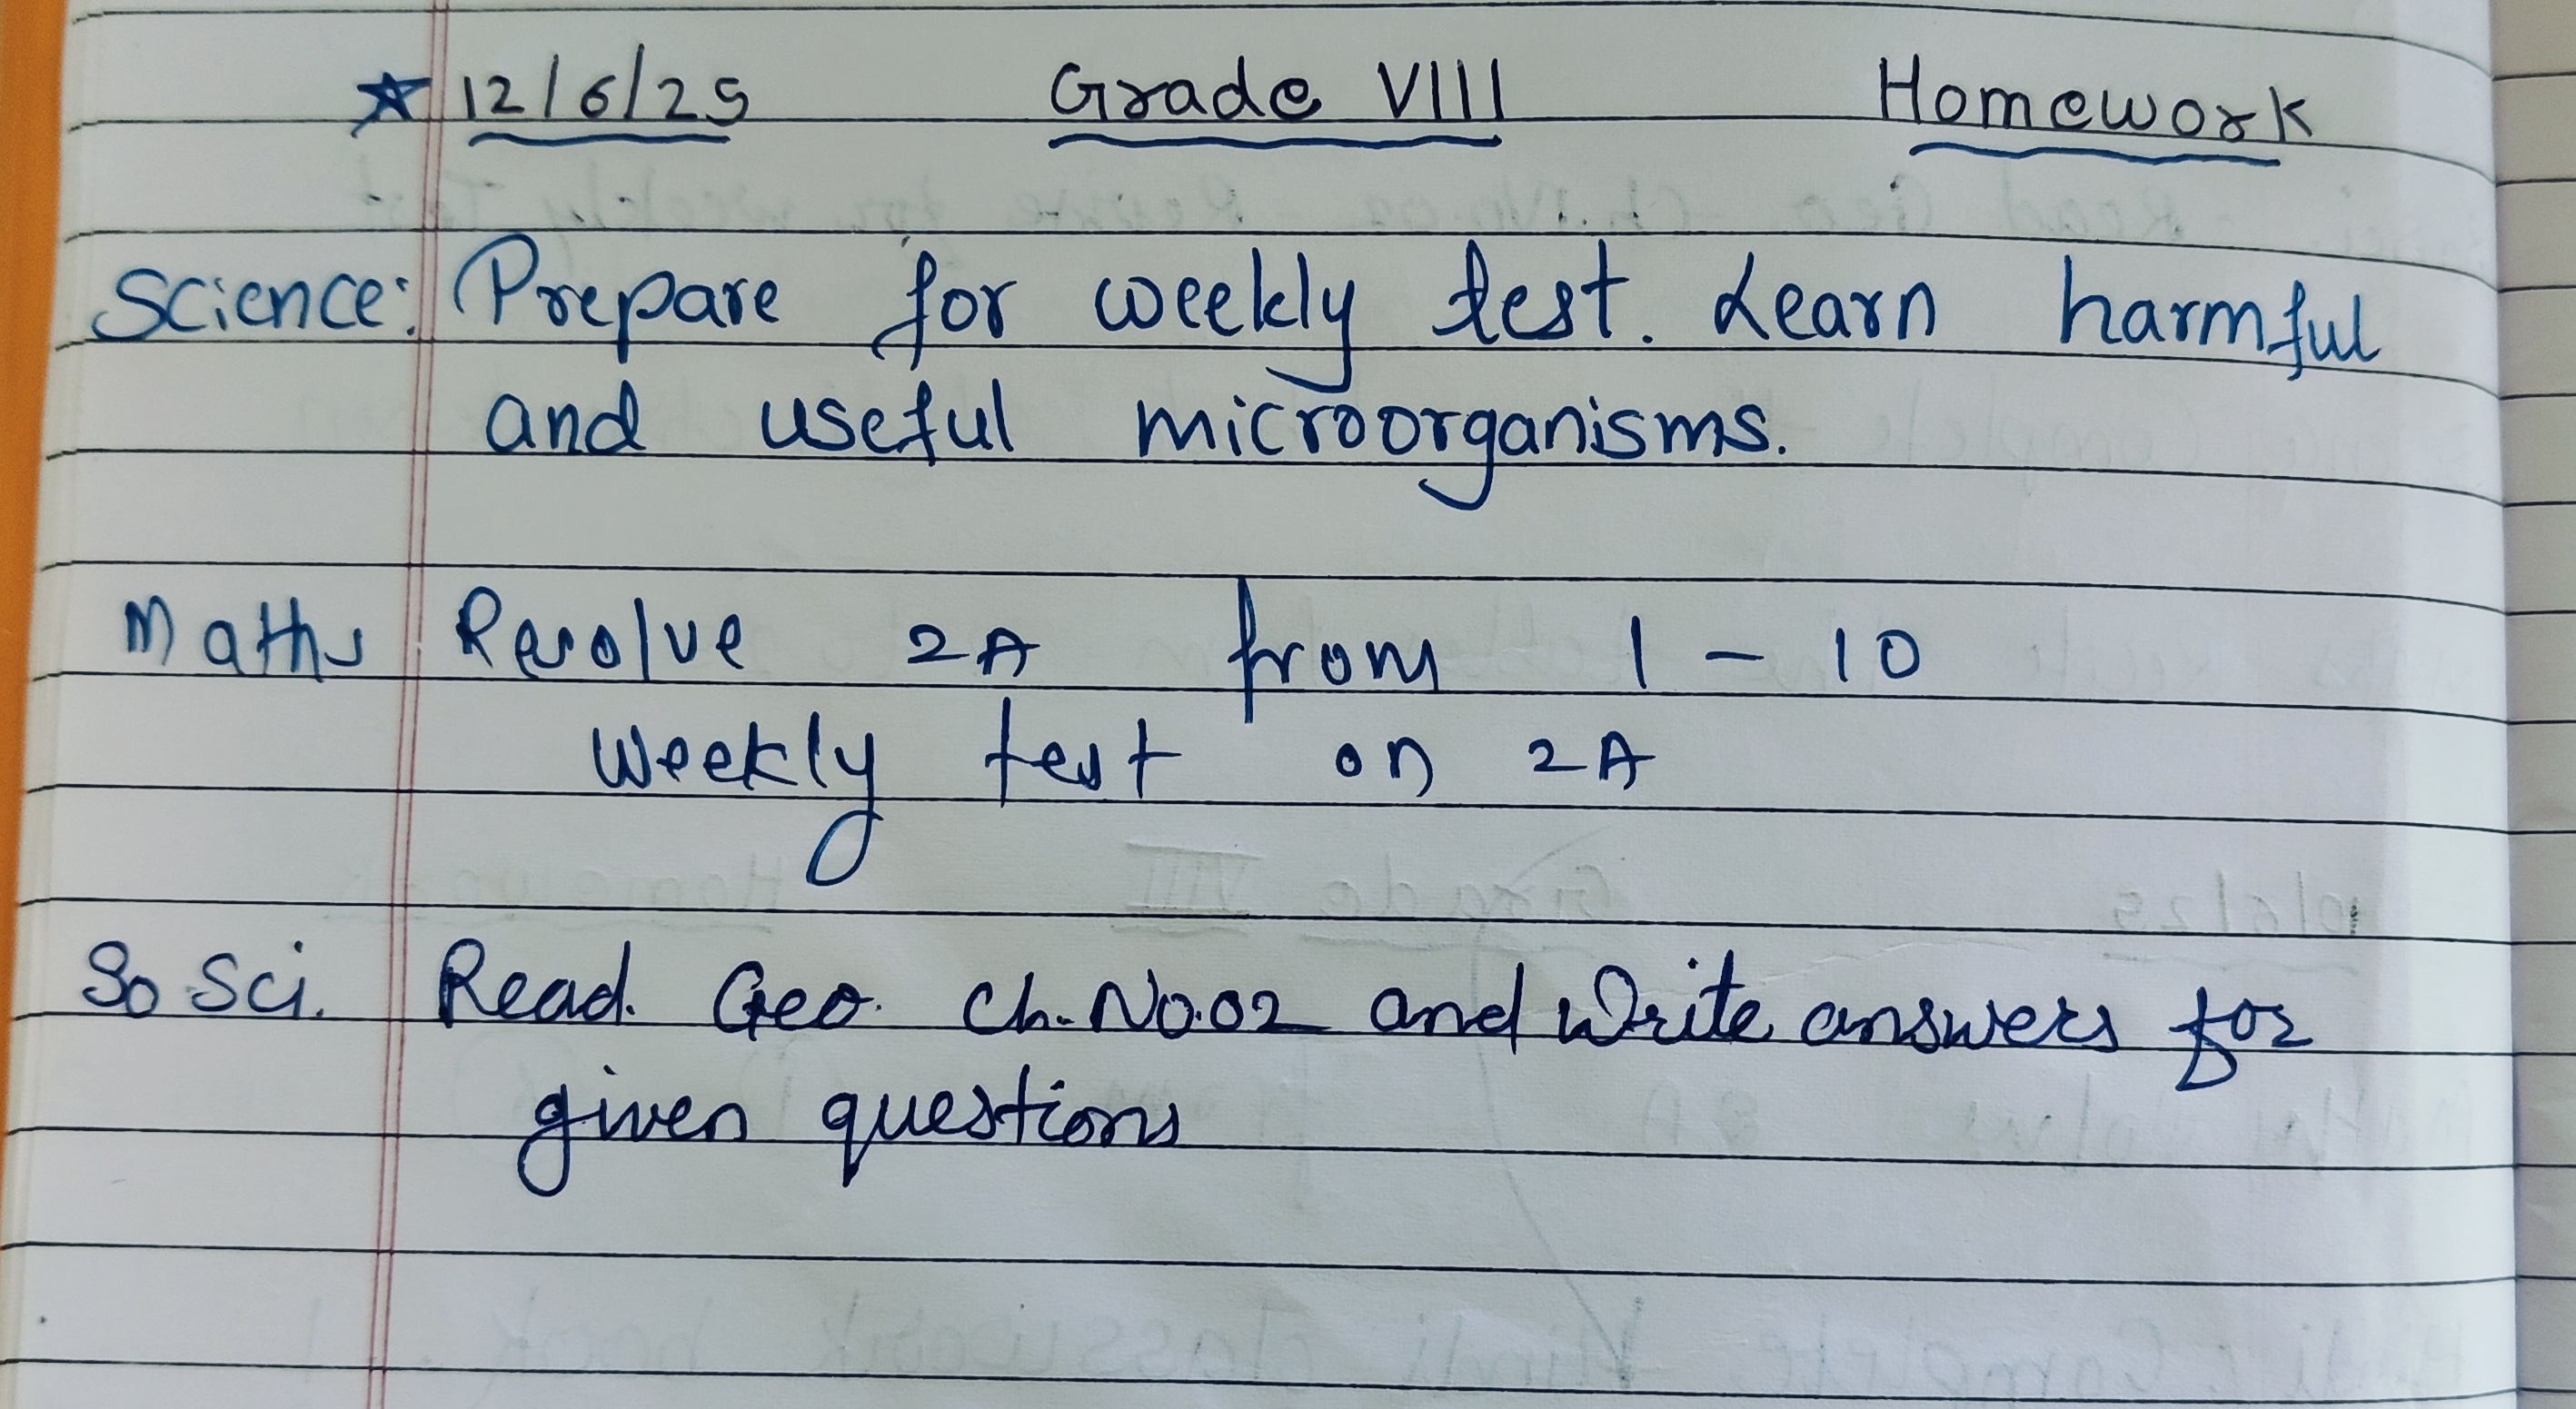 ★ 12/6/25 Grade VIII Homework
Science: Prepare for weekly test. Learn harmful
and useful microorganisms.
Maths : Resolve 2A from 1 - 10
Weekly test on 2A
So Sci. Read. Geo. Ch. No.02 and Write answers for
given questions